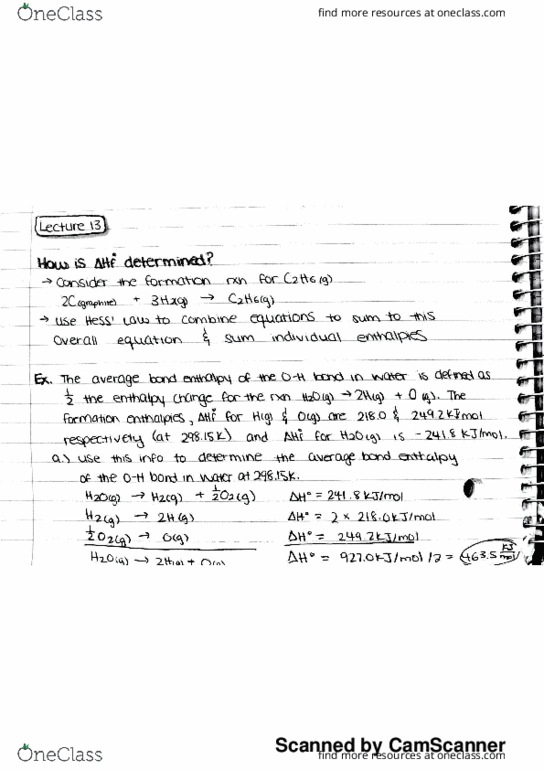 OneClass
find more resources at oneclass.com
Lecture 13
How is ΔHf° determined?
→ Consider the formation rxn for C2H6(g)
2C(graphite) + 3H2(g) → C2H6(g)
→ Use Hess' Law to combine equations to sum to this
overall equation & sum individual enthalpies
Ex. The average bond enthalpy of the O-H bond in water is defined as
½ the enthalpy change for the rxn H2O(g) → 2H(g) + O(g). The
formation enthalpies, ΔHf° for H(g) & O(g) are 218.0 & 249.2 kJ/mol
respectively (at 298.15K) and ΔHf° for H2O(g) is -241.8 kJ/mol.
a.) Use this info to determine the average bond enthalpy
of the O-H bond in water at 298.15K.
H2O(g) → H2(g) + ½O2(g) ΔH° = 241.8 kJ/mol
H2(g) → 2H(g) ΔH° = 2 × 218.0 kJ/mol
½O2(g) → O(g) ΔH° = 249.2 kJ/mol
H2O(g) → 2H(g) + O(g) ΔH° = 927.0 kJ/mol /2 = 463.5 kJ/mol
Scanned by CamScanner
OneClass
find more resources at oneclass.com